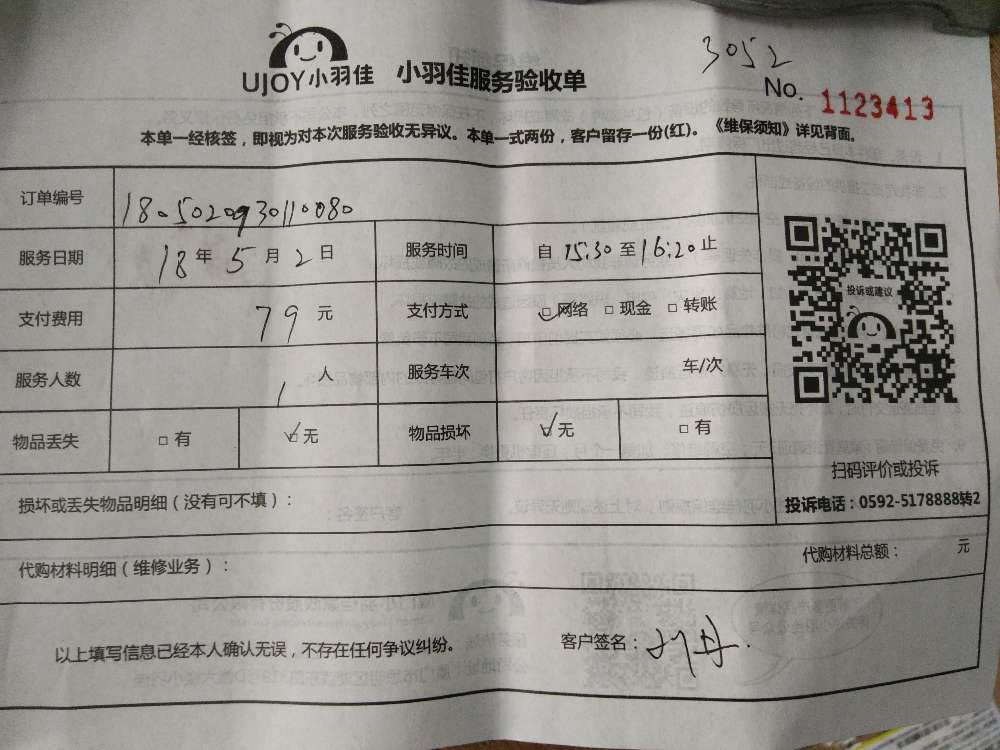 3052
UJOY小羽佳 小羽佳服务验收单
No. 1123413
本单一经核签，即视为对本次服务验收无异议。本单一式两份，客户留存一份(红)。《维保须知》详见背面。
订单编号 1805020930110080
服务日期 18年5月2日 服务时间 自15:30至16:20止
支付费用 79元 支付方式 □网络 □现金 □转账
服务人数 1人 服务车次 车/次
物品丢失 □有 □无 物品损坏 □无 □有
投诉或建议
扫码评价或投诉
投诉电话：0592-5178888转2
损坏或丢失物品明细（没有可不填）：
代购材料明细（维修业务）： 代购材料总额： 元
以上填写信息已经本人确认无误，不存在任何争议纠纷。 客户签名：